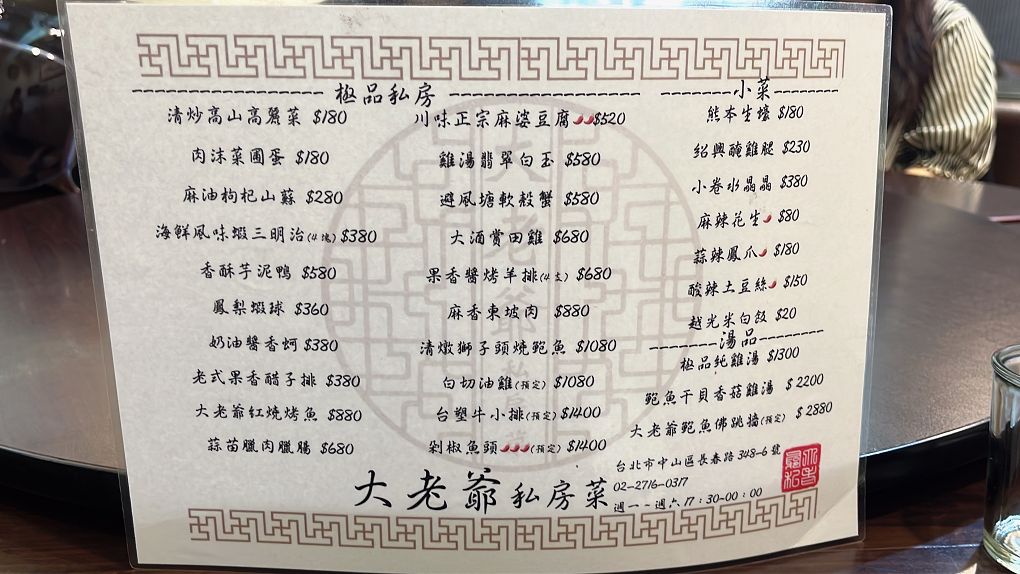 極品私房
清炒高山高麗菜 $180
肉沫菜圃蛋 $180
麻油枸杞山蘇 $280
海鮮風味蝦三明治(4塊) $380
香酥芋泥鴨 $580
鳳梨蝦球 $360
奶油醬香蚵 $380
老式果香醋子排 $380
大老爺紅燒烤魚 $880
蒜苗臘肉臘腸 $680
川味正宗麻婆豆腐 $520
雞湯翡翠白玉 $580
避風塘軟殼蟹 $580
大酒赏田雞 $680
果香醬烤羊排(4支) $680
麻香東坡肉 $880
清燉獅子頭燒鮑魚 $1080
白切油雞(預定) $1080
台塑牛小排(預定) $1400
剁椒魚頭(預定) $1400
小菜
熊本生蠔 $180
紹興醃雞腿 $230
小卷水晶晶 $380
麻辣花生 $80
蒜辣鳳爪 $180
酸辣土豆絲 $150
越光米白飯 $20
湯品
極品純雞湯 $1300
鮑魚干貝香菇雞湯 $2200
大老爺鮑魚佛跳牆(預定) $2880
大老爺私房菜
台北市中山區長春路348-6號
02-2716-0317
週一~週六17:30-00:00